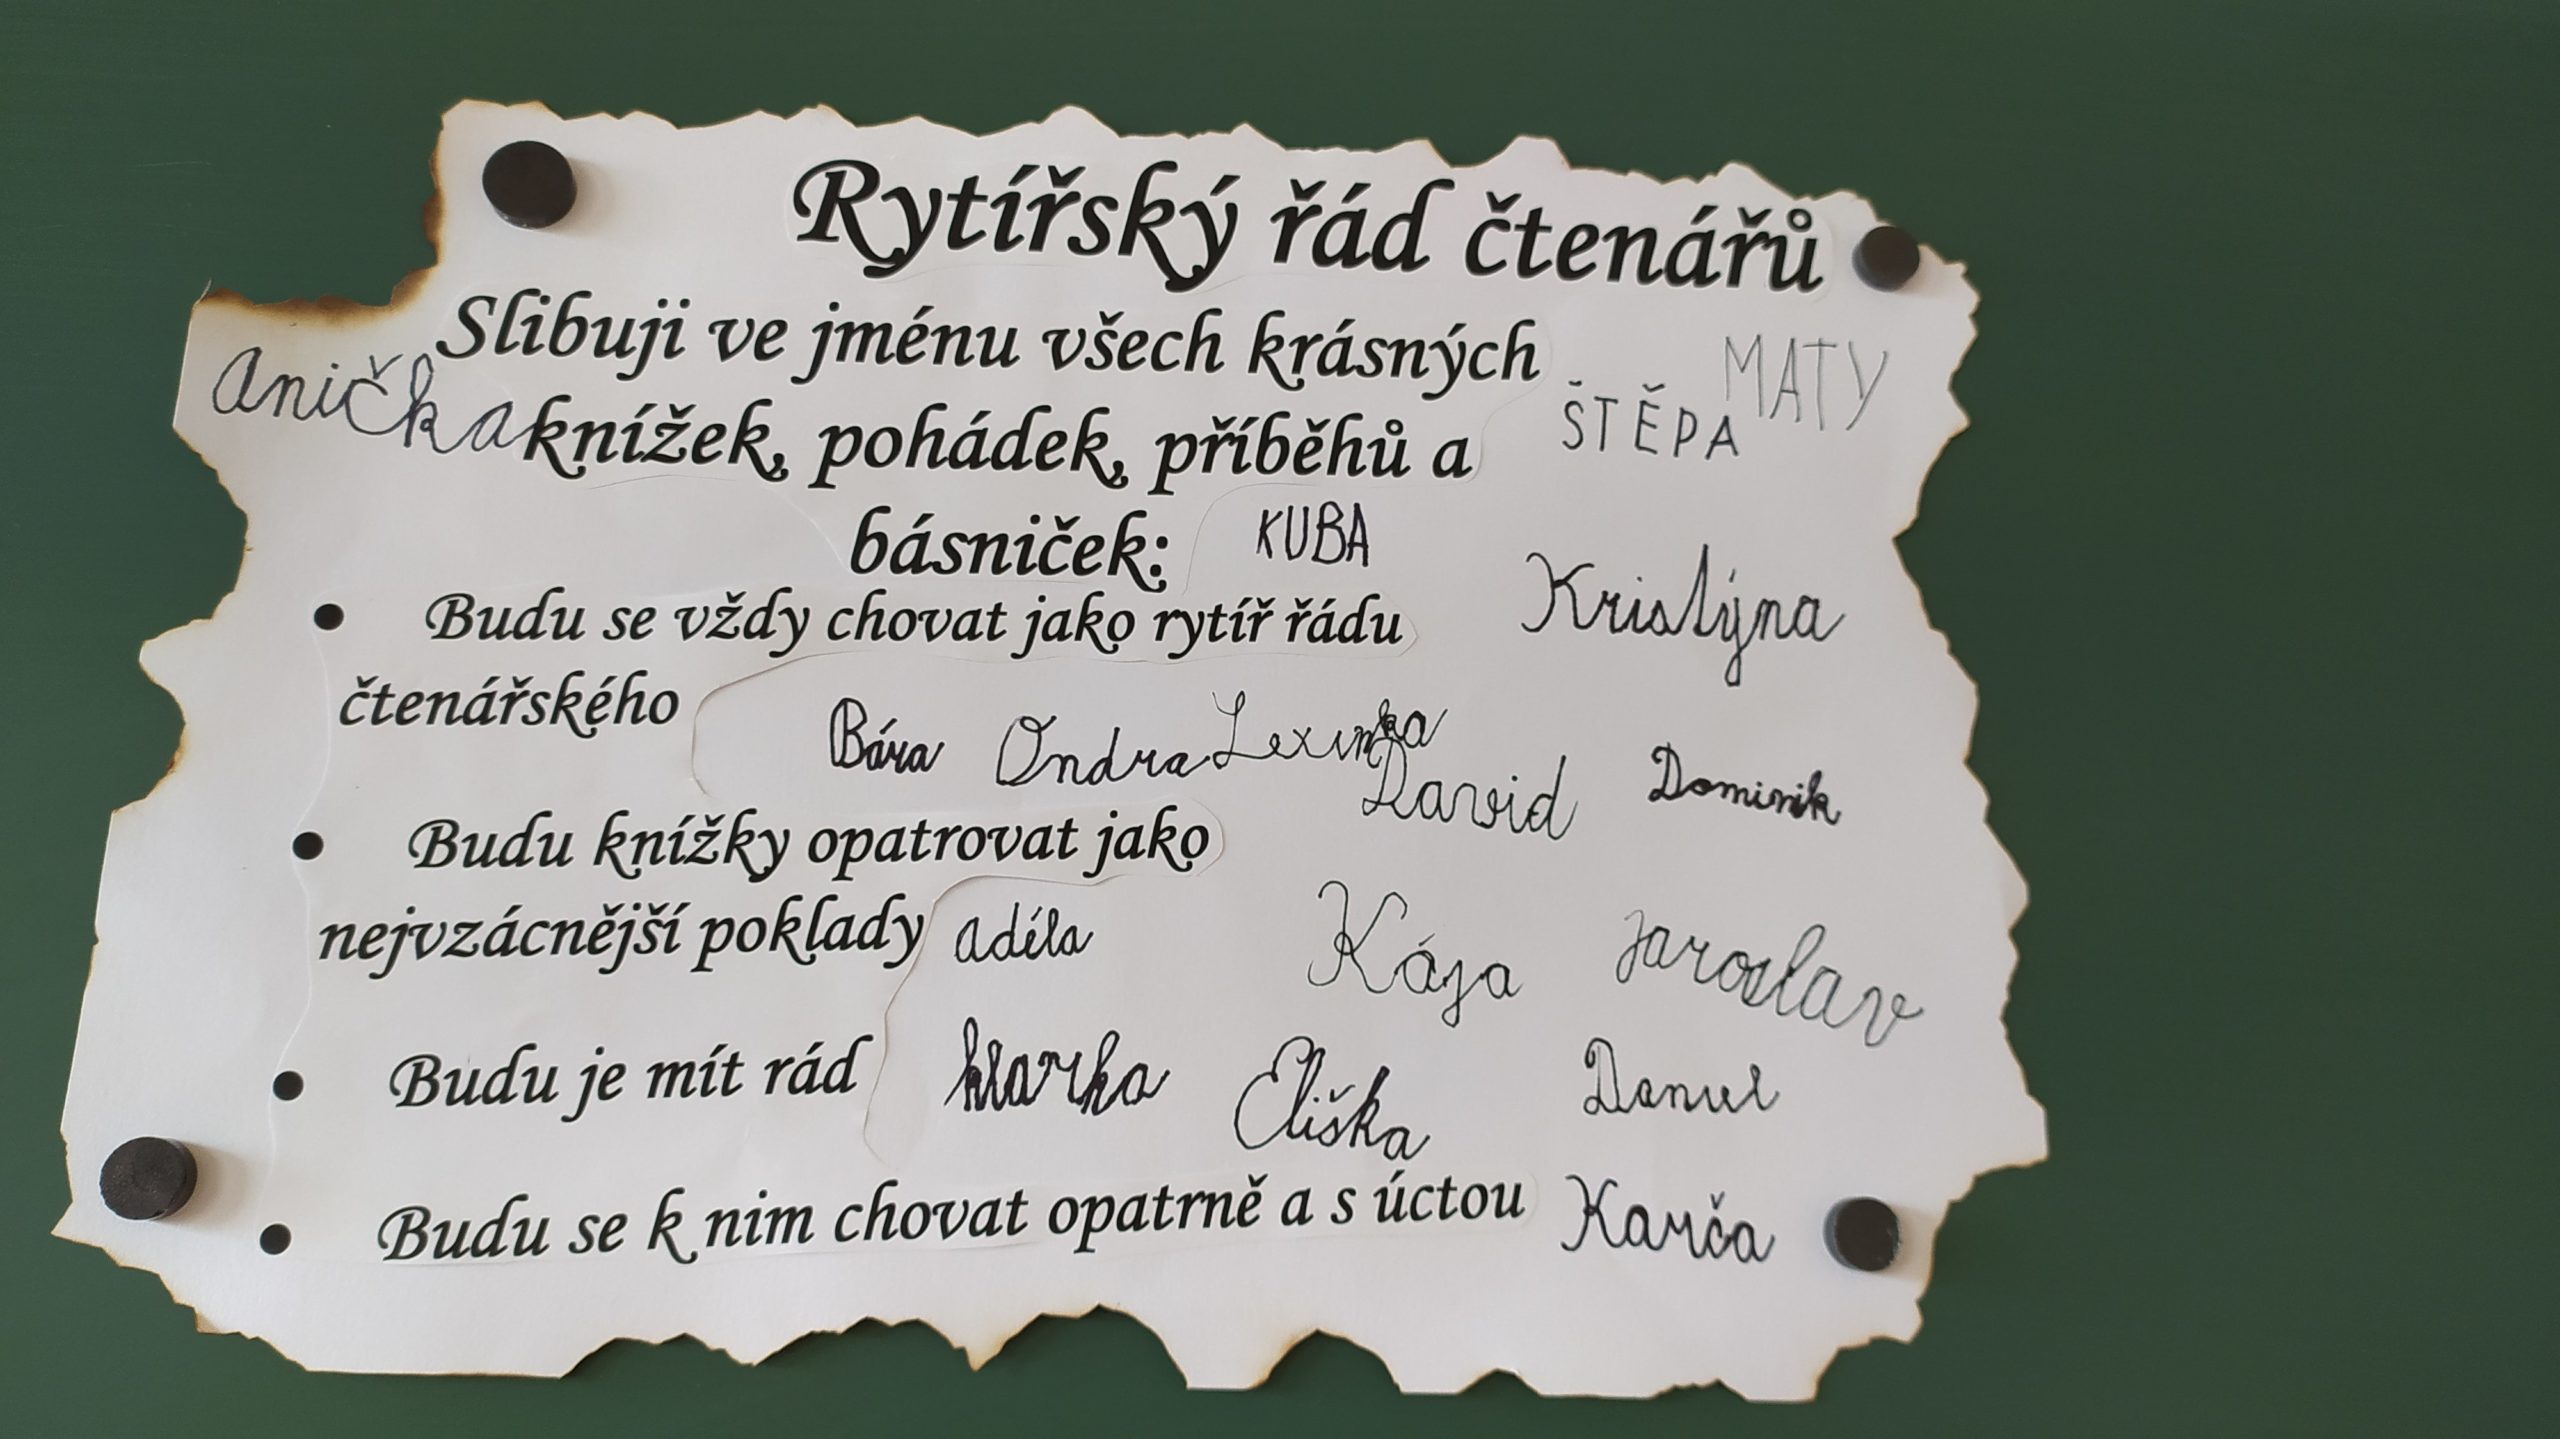 Rytířský řád čtenářů
Slibuji ve jménu všech krásných
MATY
Anička knížek, pohádek, příběhů a
ŠTĚPA
básniček: KUBA
Budu se vždy chovat jako rytíř řádu
Kristýna
čtenářského
Bára Ondra Lexinka
David Dominik
Budu knížky opatrovat jako
nejvzácnější poklady Adéla Kája Jaroslav
Budu je mít rád klarka Eliška Daniel
Budu se k nim chovat opatrně a s úctou Karča